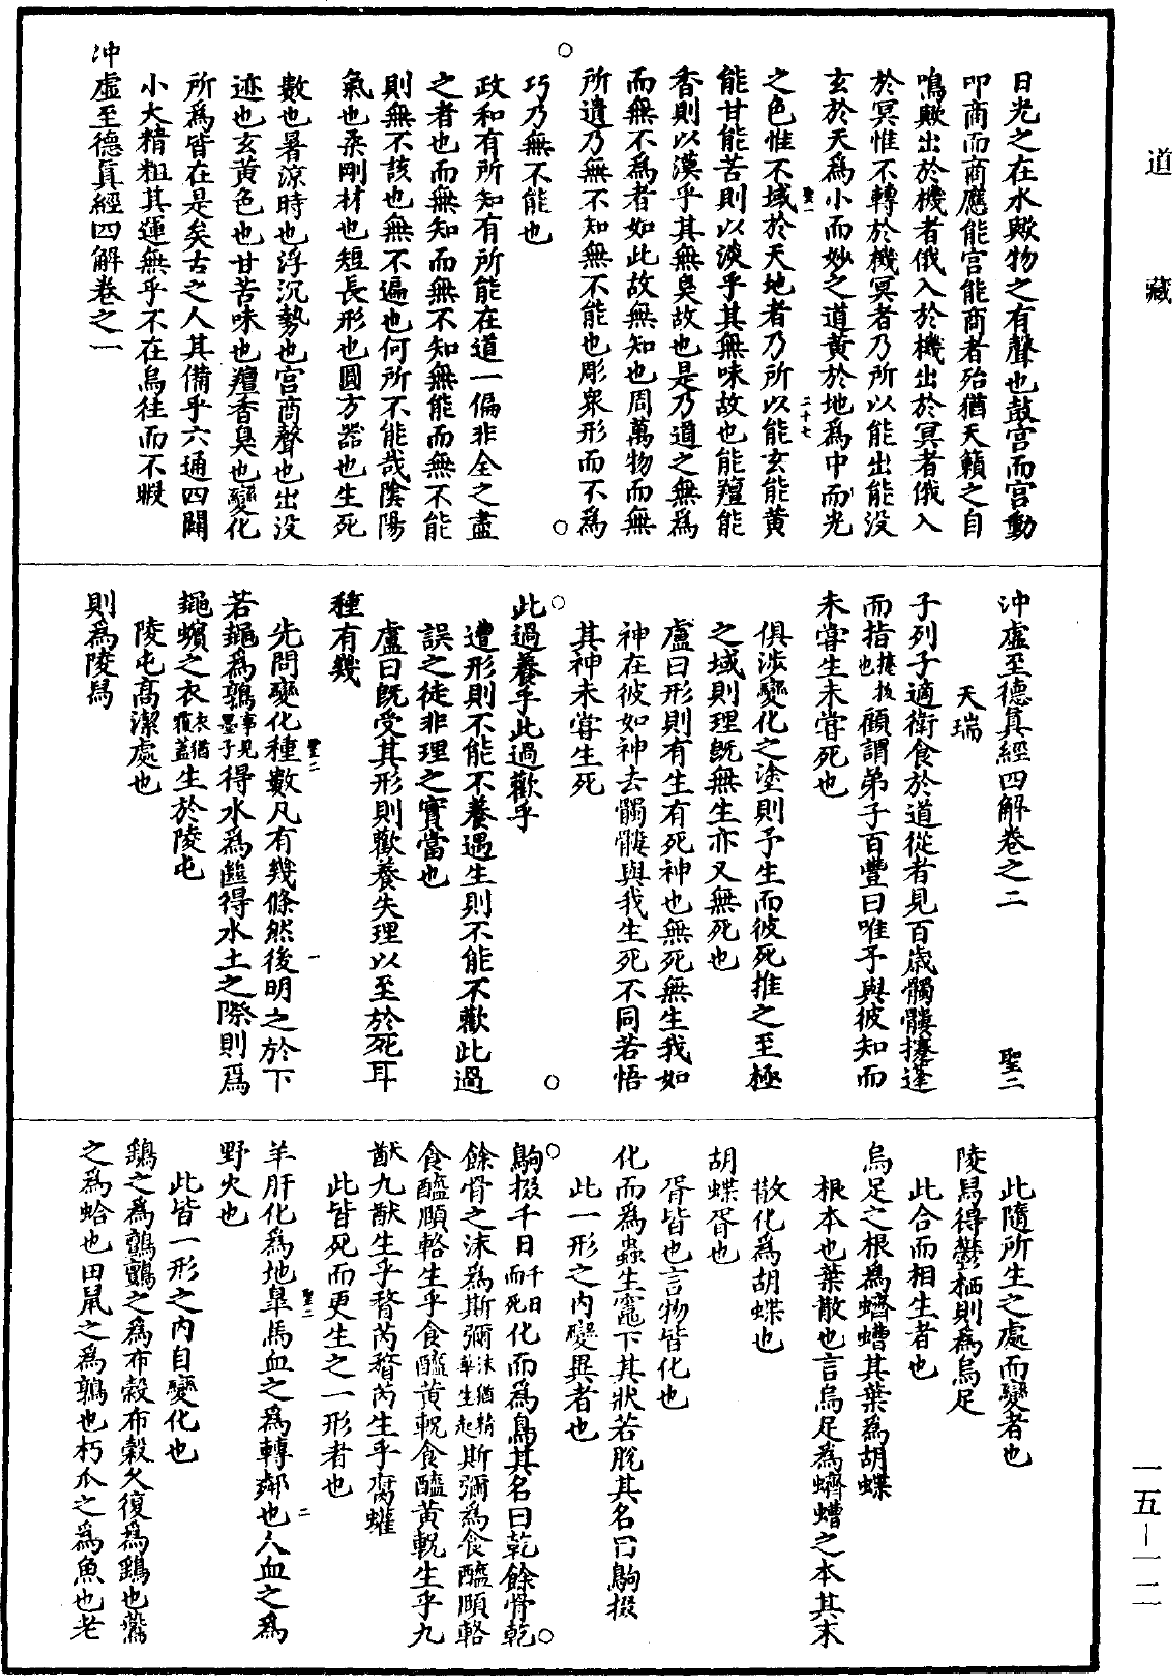 道藏
日光之在水歟物之有聲也鼓宮而宮動
叩商而商應能宮能商者殆猶天籟之自
鳴歟出於機者俄入於機出於冥者俄入
於冥惟不轉於機冥者乃所以能出能没
玄於天爲小而妙之道黄於地爲中而光
之色惟不域於天地者乃所以能玄能黄
聖一
二十七
能甘能苦則以淡乎其無味故也能羶能
香則以漠乎其無臭故也是乃道之無爲
而無不爲者如此故無知也周萬物而無
所遺乃無不知無不能也彫衆形而不爲
巧乃無不能也
政和有所知有所能在道一偏非全之盡
之者也而無知而無不知無能而無不能
則無不該也無不遍也何所不能哉陰陽
氣也柔剛材也短長形也圓方器也生死
數也暑涼時也浮沉勢也宮商聲也出没
迹也玄黄色也甘苦味也羶香臭也變化
所爲皆在是矣古之人其備乎六通四闢
小大精粗其運無乎不在烏往而不暇
沖虛至德真經四解卷之一
沖虛至德真經四解卷之二 聖二
天瑞
子列子適衛食於道從者見百歲髑髏攓蓬
而指攓拔也顧謂弟子百豐曰唯予與彼知而
未嘗生未嘗死也
俱涉變化之塗則予生而彼死推之至極
之域則理既無生亦又無死也
盧曰形則有生有死神也無死無生我如
神在彼如神去髑髏與我生死不同若悟
其神未嘗生死
此過養乎此過歡乎
遭形則不能不養遇生則不能不歡此過
誤之徒非理之實當也
盧曰既受其形則歡養失理以至於死耳
種有幾
先問變化種數凡有幾條然後明之於下
聖二
一
若䵷爲鶉事見墨子得水爲㡭得水土之際則爲
䵷蠙之衣衣猶覆蓋生於陵屯
陵屯高潔處也
則爲陵舄
此隨所生之處而變者也
陵舄得鬱栖則爲烏足
此合而相生者也
烏足之根爲蠐螬其葉爲胡蝶
根本也葉散也言烏足爲蠐螬之本其末
散化爲胡蝶也
胡蝶胥也
胥皆也言物皆化也
化而爲蟲生竈下其狀若脫其名曰鴝掇
此一形之内變異者也
鴝掇千日千日而死化而爲鳥其名曰乾餘骨乾
餘骨之沫爲斯彌沫猶精華生起斯彌爲食醯頤輅
食醯頤輅生乎食醯黄軦食醯黄軦生乎九
猷九猷生乎瞀芮瞀芮生乎腐蠸
此皆死而更生之一形者也
羊肝化爲地臯馬血之爲轉鄰也人血之爲
聖二
二
野火也
此皆一形之内自變化也
鷂之爲鸇鸇之爲布穀布穀久復爲鷂也鷰
之爲蛤也田鼠之爲鶉也朽爪之爲魚也老
一五-一二